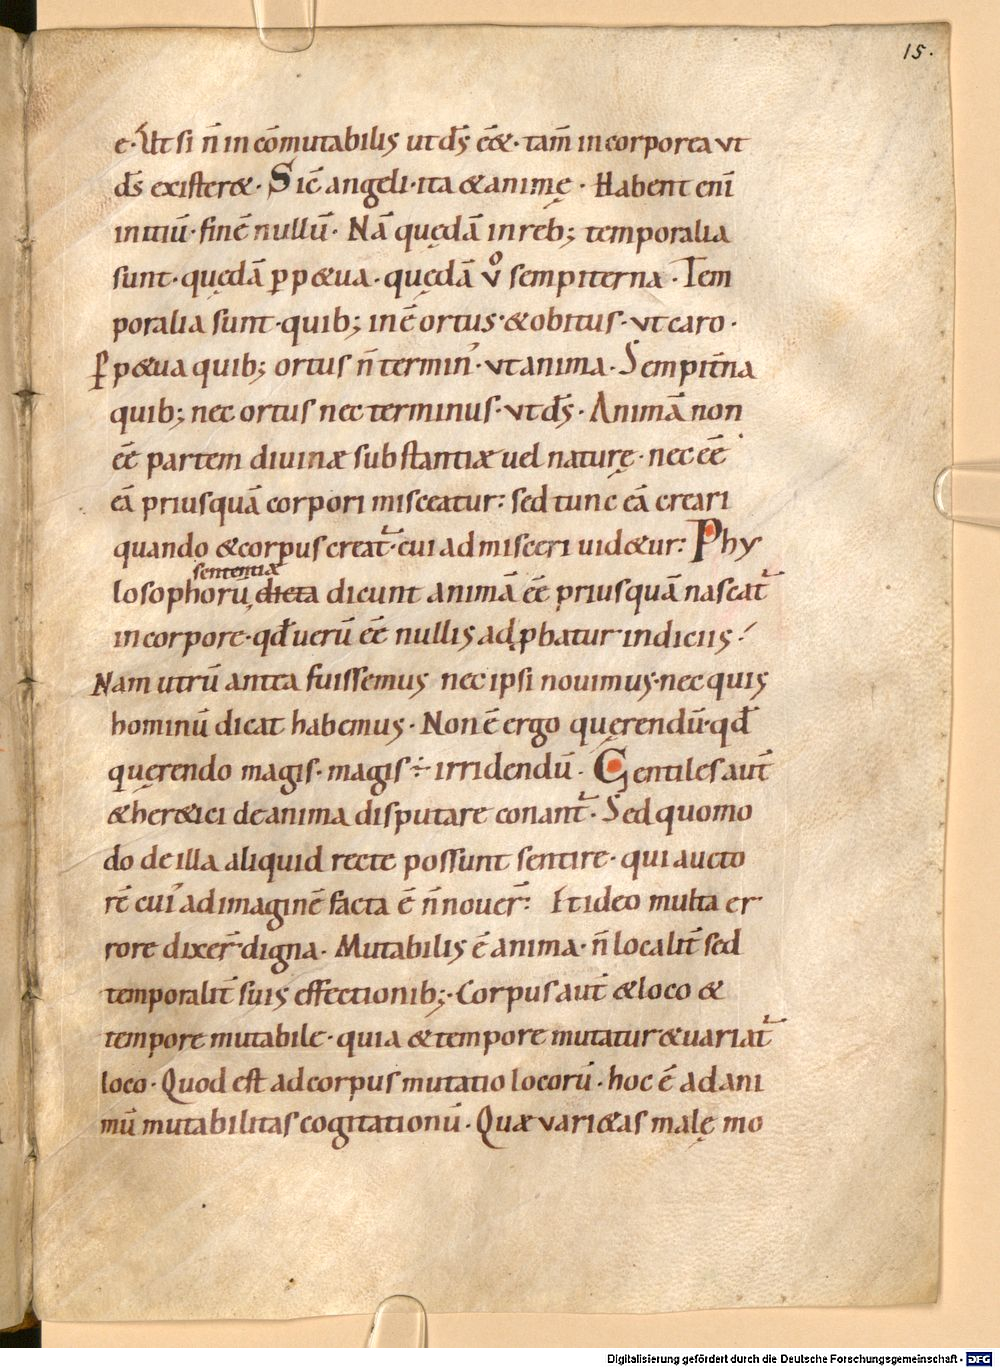 15.
e· Ut si n̄ incōmutabilis ut dꝰs eēt· tam̄ incorporea ut
dꝰs existeret· Sic̄ angeli· ita & animę· Habent enī
initiū· finē nullū· Nā quędā in reb; temporalia
sunt· quędā ꝑpetua· quędā v̊ sempiterna· Tem
poralia sunt· quib; inē ortus· & obitus· vt caro·
Ꝑpetua quib; ortus n̄ termin᾽· vt anima· Sempit̄na
quib; nec ortus nec terminus· vt d̄s· Animā non
eē partem divinæ substantiæ vel naturę· nec eē
eā priusquā corpori misceatur: sed tunc eā creari
quando & corpus creat᷑· cui admisceri uidetur: Phy
sententiæ
losophorū dicta dicunt animā eē priusquā nascat᷑
in corpore· qđ uerū eē nullis adꝓbatur indiciis·
Nam utrū antea fuissemus nec ipsi novimus· nec quis
hominū dicat habemus· Non ē ergo quęrendū· qđ
quęrendo magis· magis ÷ irridendū· Gentiles aut̄
& heretici de anima disputare conant᷑· Sed quomo
do de illa aliquid recte possunt sentire· qui aucto
rē cui᾽ ad imaginē facta ē n̄ nouer̄: Et ideo multa er
rore dixer̄ digna· Mutabilis ē anima· n̄ localit̄ sed
temporalit̄ suis effectionib;· Corpus aut̄ & loco &
tempore mutabile· quia & tempore mutatur & uariat᷑
loco· Quod est ad corpus mutatio locorū· hoc ē ad ani
mū mutabilitas cogitationū· Quæ varietas malę mo
Digitalisierung gefördert durch die Deutsche Forschungsgemeinschaft - DFG